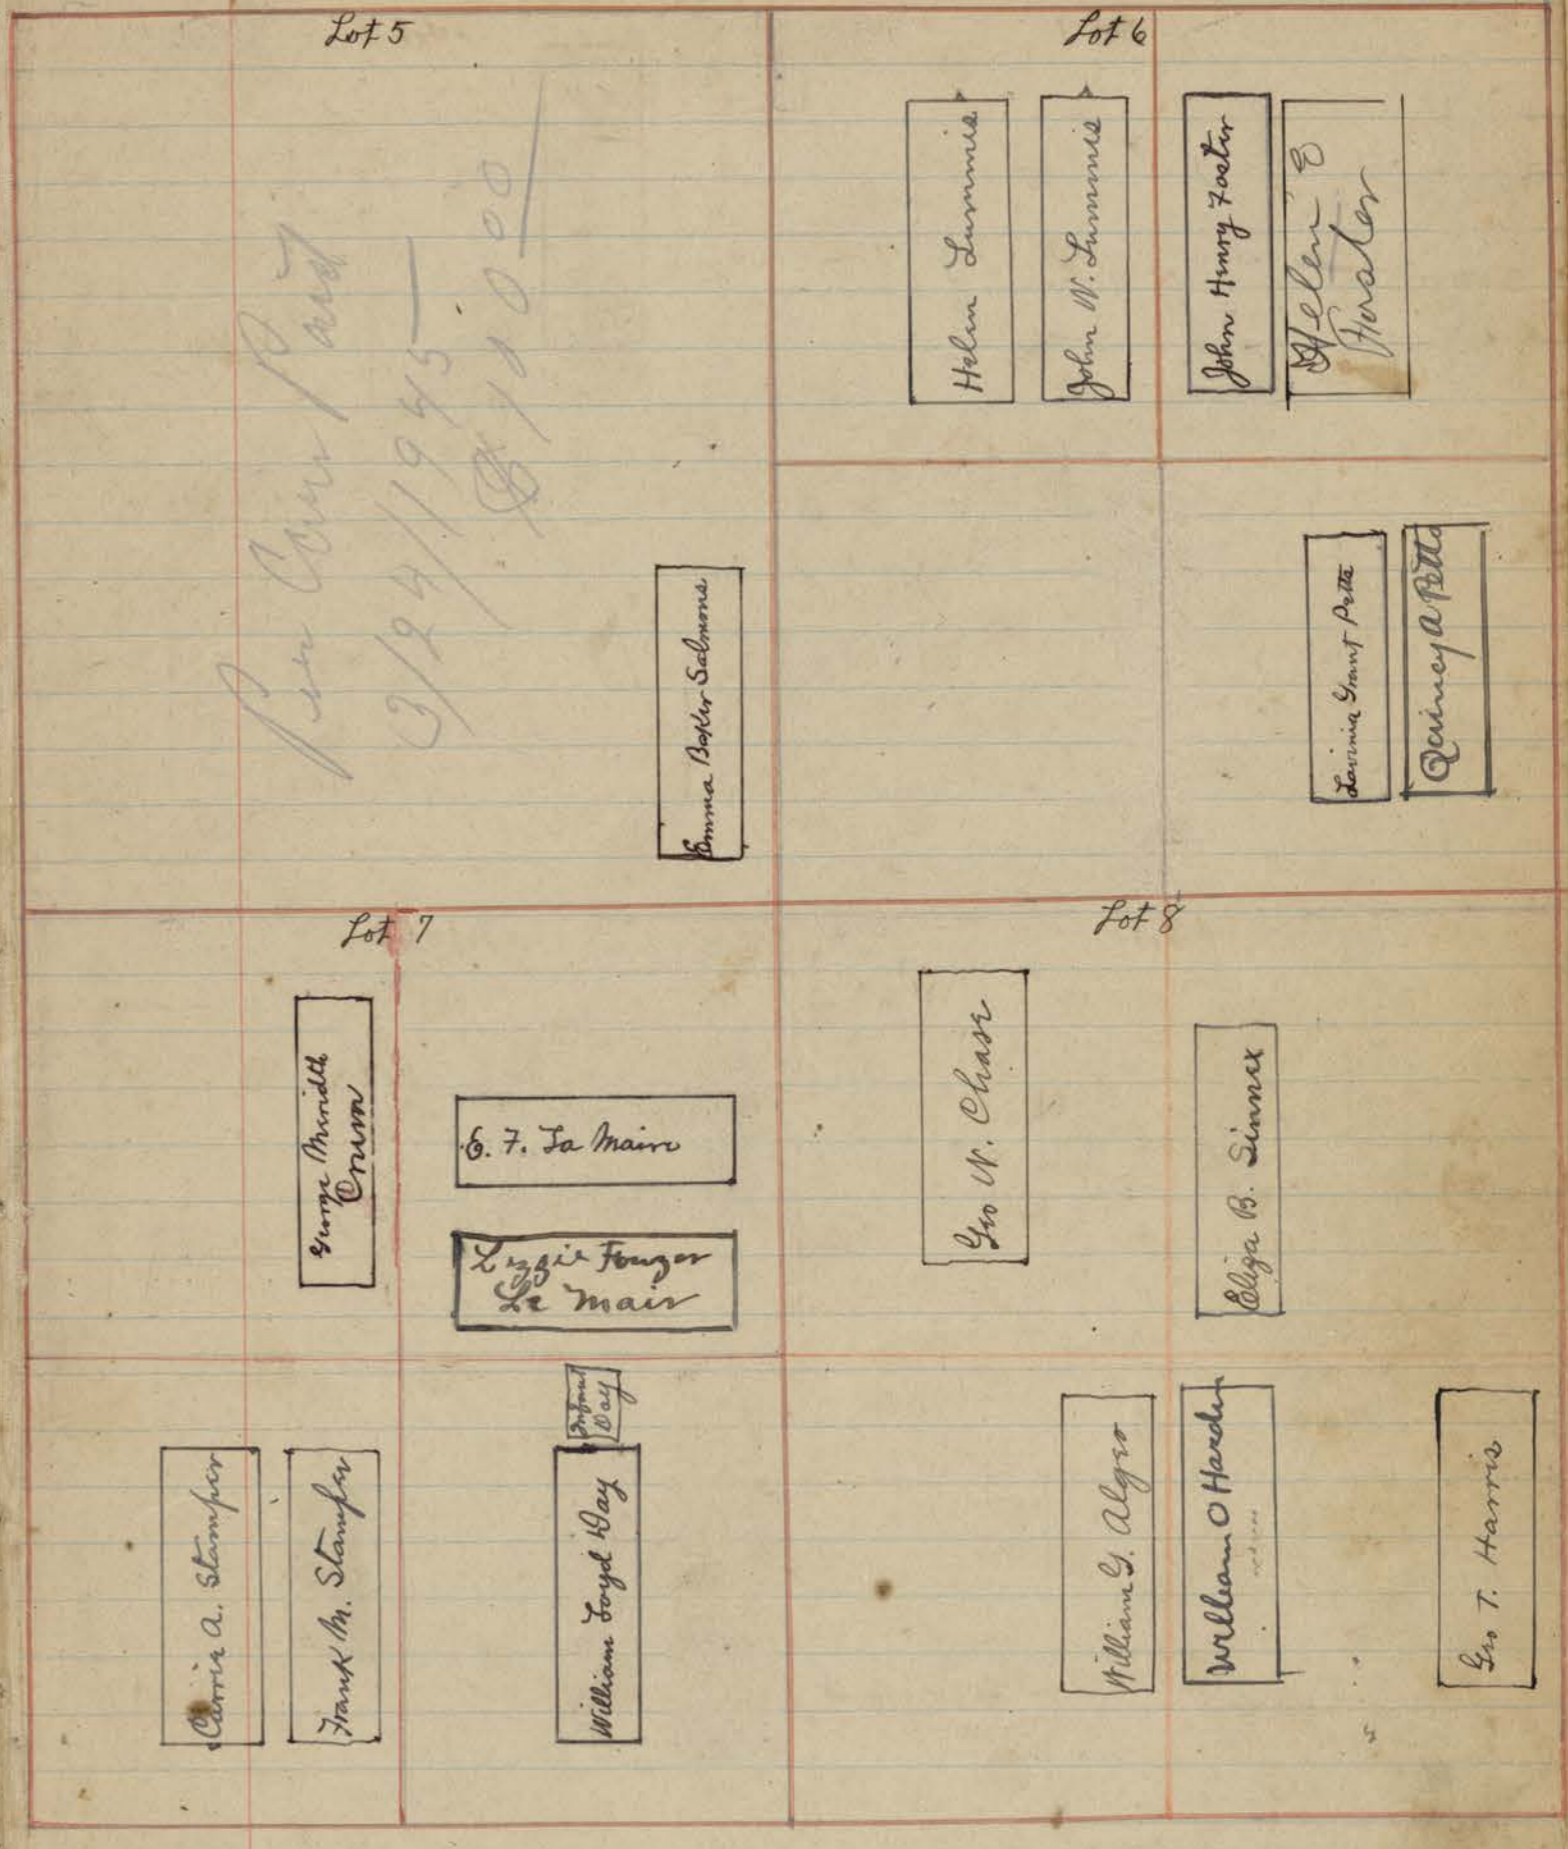 Lot 5
Per Care Paid
3/24/1945 —
$100.00
Emma Baker Salmons
Lot 6
Helen Lummis
John W. Lummis
John Henry Foster
Helen E
Foster
Lavinia Grant Petts
Quincey A Petts
Lot 7
George
Crum
E. F. La Maire
Lizzie
Le Mair
Carrie A. Stamper
Frank M. Stamper
Infant
Day
William Loyd Day
Lot 8
Geo W. Chase
Eliza B. Sinnex
William G. Alger
William O Harden
Geo T. Harris